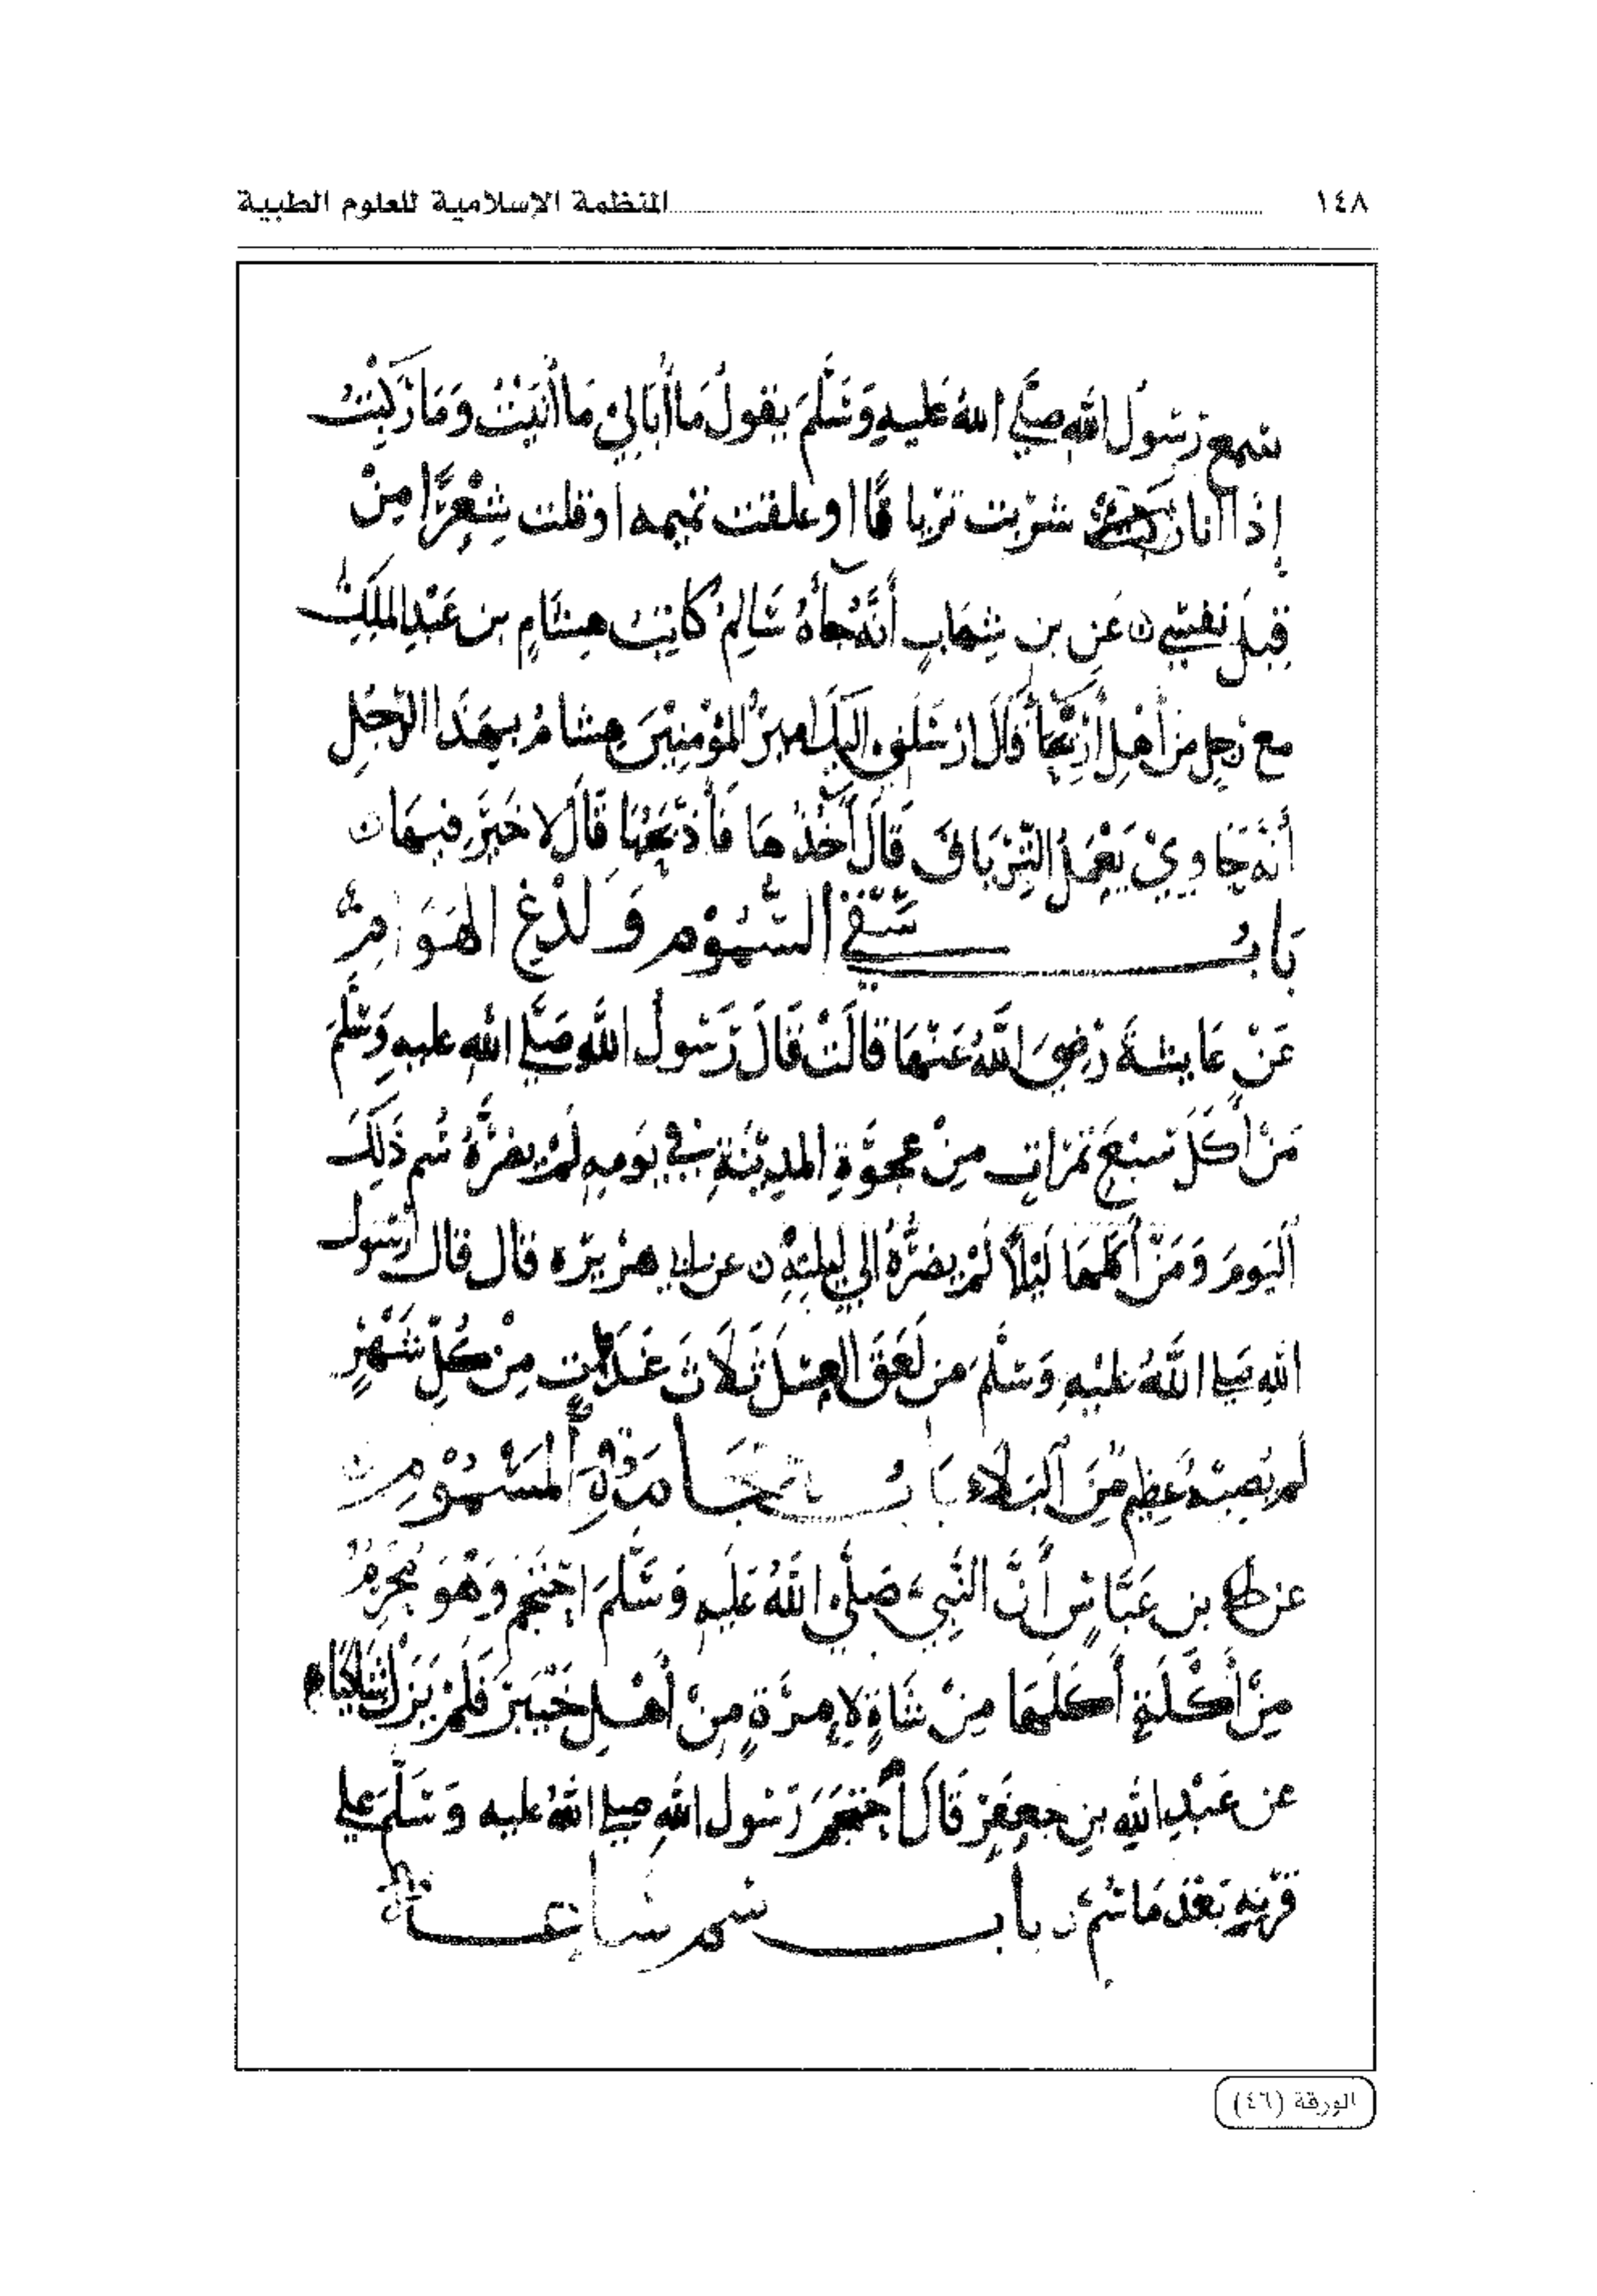 ١٤٨ المنظمة الإسلامية للعلوم الطبية
سمع رَسُولَ الله صَلَّى اللهُ عَليهِ وَسَلَّمَ يقولُ مَا أُبَالِيْ مَا أَتَيْتُ وَمَا رَكِبْتُ
إِذا انا شَرْبت ترْياقًا او علقت تميمه او قلت شِعْرًا مِنْ
قِبَلِ نَفْسِي ن عَن بن شِهَابٍ أَنَّهُ جَأهُ سَالِمُ كَاتِبُ هِشَامِ بن عَبْدِ الملِكِ
مع رَجلٍ من أهلِ أَرِيْحَا فَقَالَ ارْسَلني اليكَ اميرُ المؤْمِنِيْنَ هِشَامُ بِهَذَا الرَّجُلِ
أنَّه حَاوِيْ يَعْمَلُ التِّرْيَاقَ قَالَ آخُذُهَا فَأَذْبَحُهَا قَالَ لا خَيْرَ فيهَا ن
بَابُ سَقْيِ السُّمُوْمِ وَلَدْغِ الهَوَامِّ
عَنْ عَايشَةَ رَضِيَ اللَّهُ عَنْهَا قَالَتْ قَالَ رَسُولُ اللهِ صَلَّى اللهِ عليهِ وَسَلَّمَ
مَنْ أَكَلَ سَبْعَ تَمَرَاتٍ مِنْ عَجْوَةِ المدِيْنَةِ فِي يَومِهِ لَمْ يَضُرَّهُ سُم ذَلِكَ
اليَومَ وَمَنْ أَكَلَهَا لَيْلًا لَمْ يَضُرَّهُ الي لَيلتِهِ ن عن ابي هرَيرَه قال قال رسُول
اللهِ صَلي اللَّهُ عَليْهِ وَسَلَّمَ مَن لَعَقَ العسَلَ ثَلَاثَ غَدَوَاتٍ مِنْ كُلِّ شَهْرٍ
لَم يُصِبْهُ عَظِيم مِنَ البَلَاء بَابُ حجَامَةِ المَسْمُوْمِ ن
عن بن عَبَّاسٍ أَنَّ النَّبِيَّ صَلَّى اللَّهُ عَلَيهِ وَسَّلَمَ احْتَجَمَ وَهْوَ مُحْرِمُ
مِنْ أَكْلَةٍ أَكَلَهَا مِنْ شَاةٍ لِامرَةٍ مِنْ أهْلِ خَيْبَرَ فَلَمْ يَزَلْ شَاكِيًا
عن عَبْدِ اللهِ بنِ جَعْفَرْ قَالَ احْتَجَمَ رَسُول اللهِ صلي اللهُ عليه وَسَلَّمَ عَلي
قَرْنِهِ بَعْدَ مَا سُمَّ ن بابُ سُم سَاعَة
الورقة (٤٦)